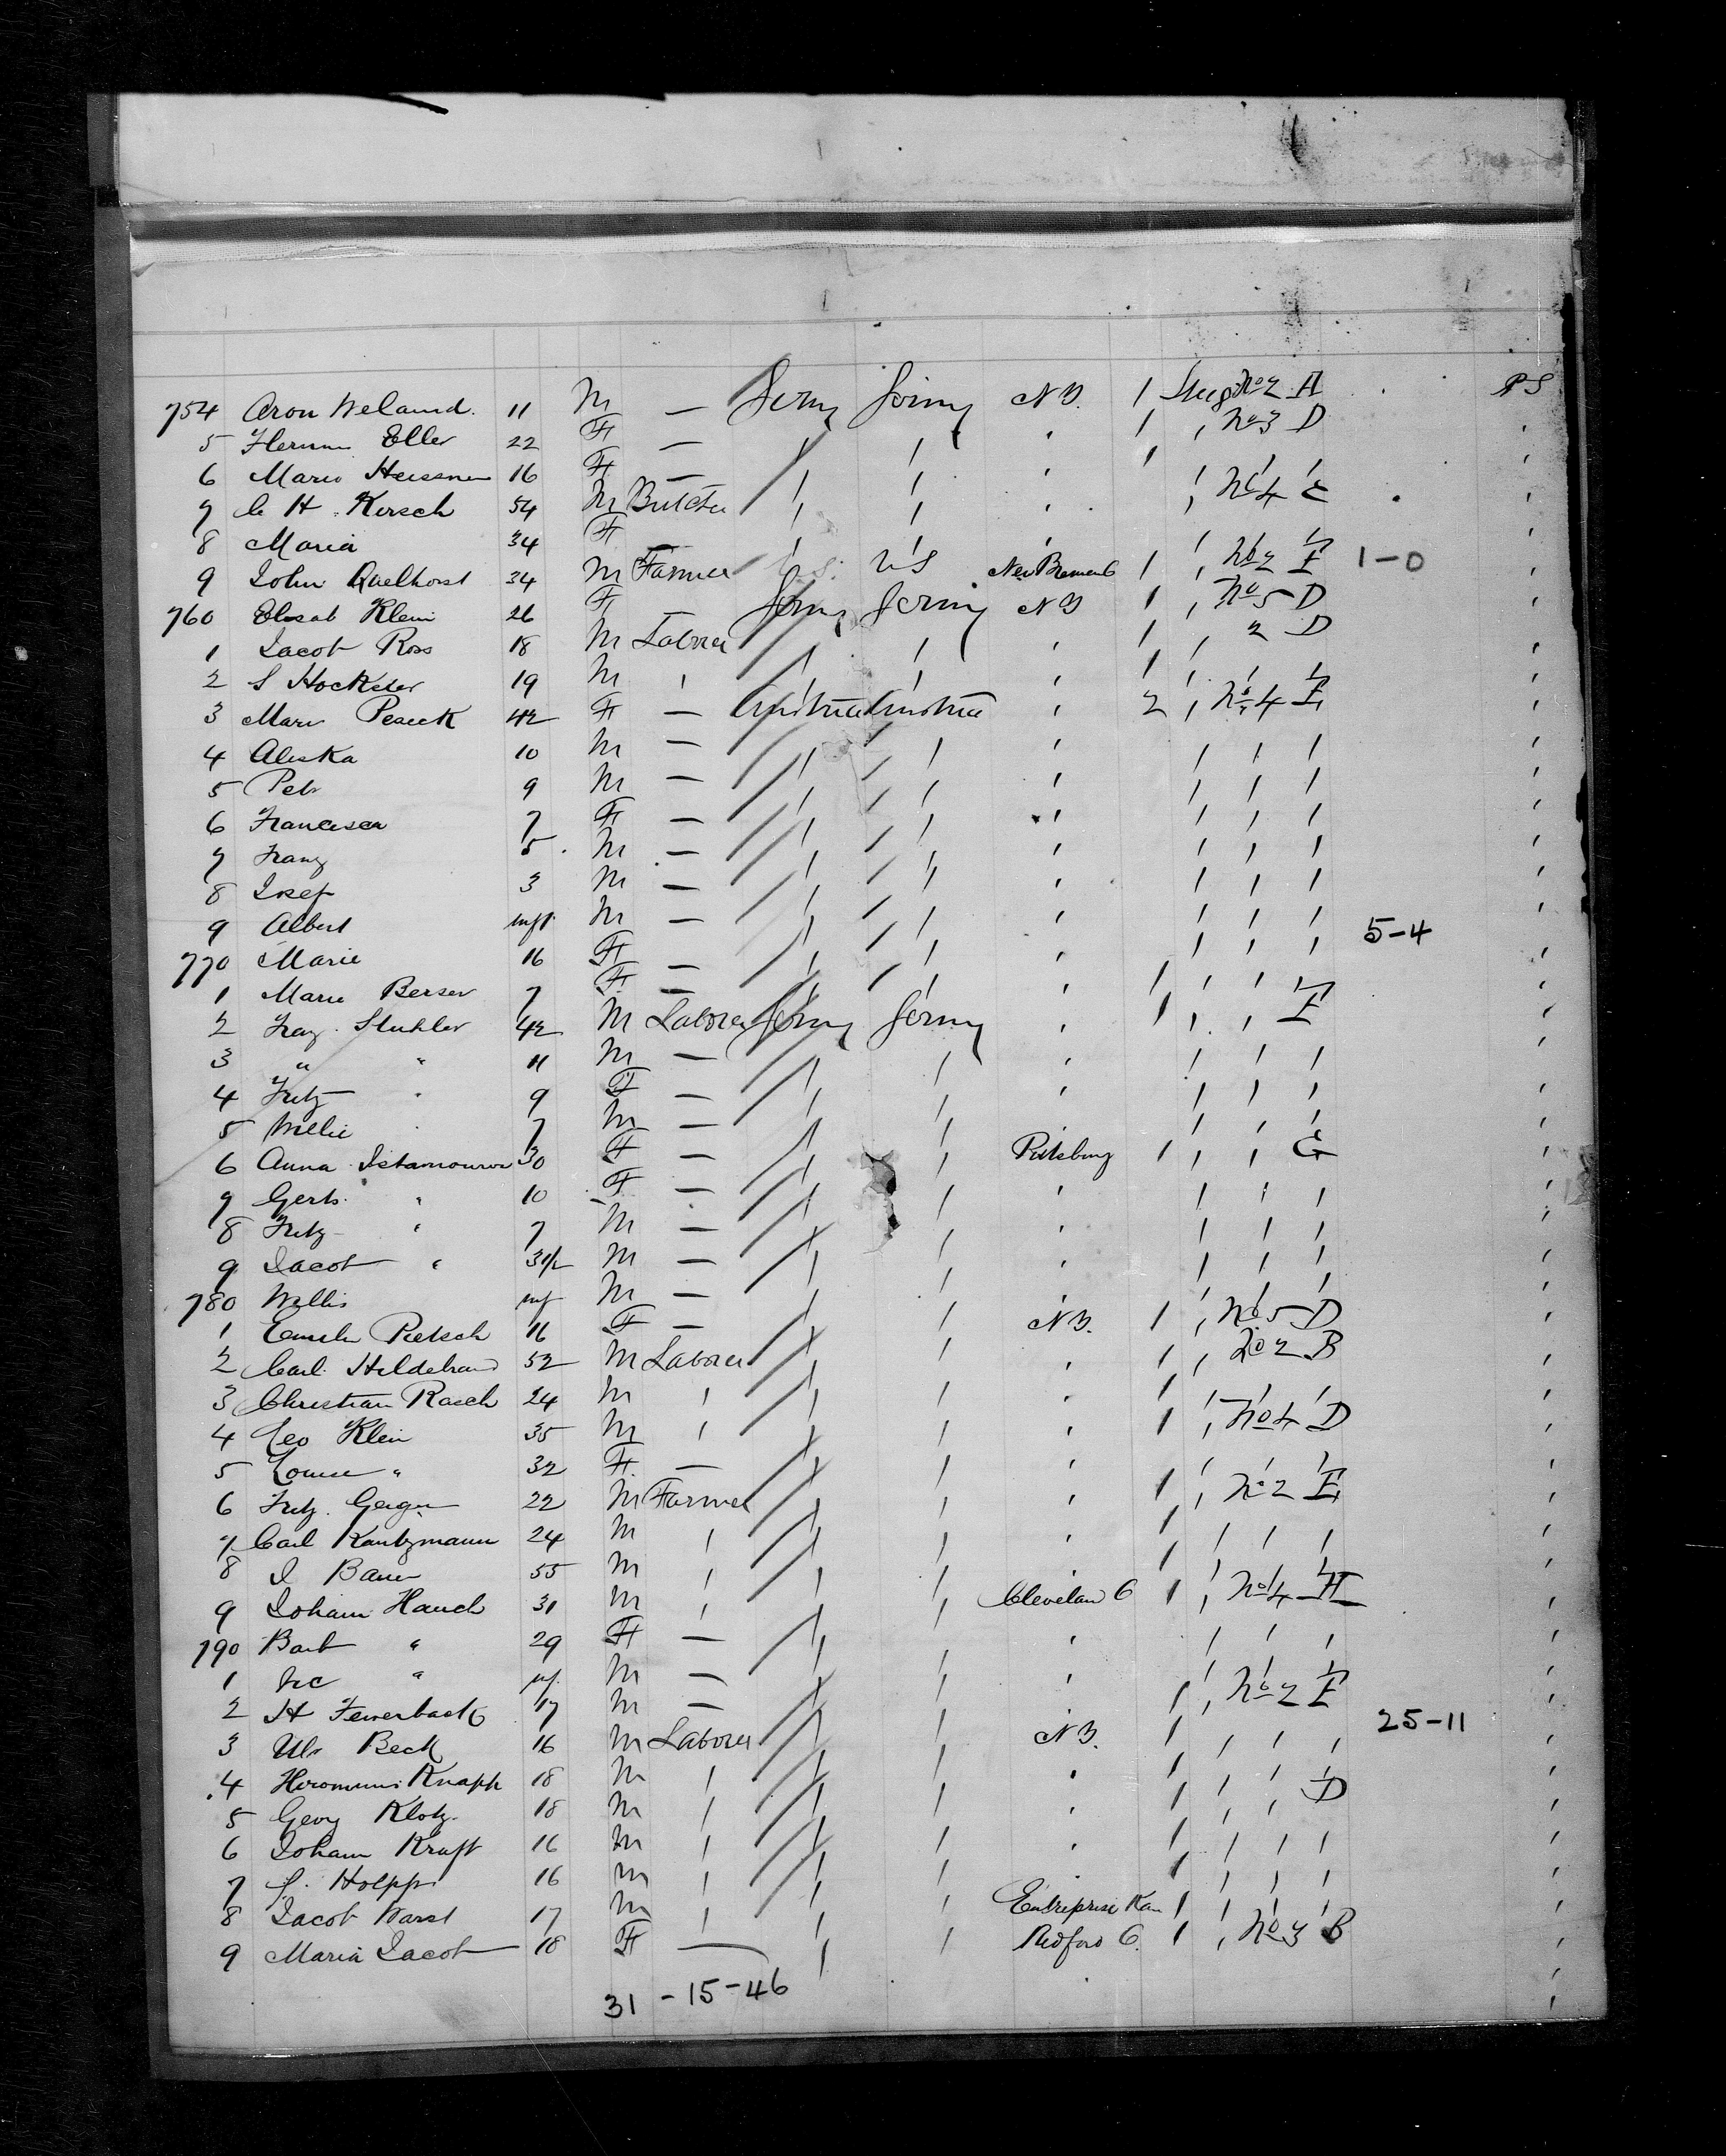 754 Aron Weland. 11 M — Germy Germy N Y. 1 Steg No 2 H PS
5 Eller 22 F — ' ' ' 1 ' No 3 D '
6 Marie Heissner 16 F — ' ' ' 1 ' ' ' '
7 C H. Kersch 54 M Butcher ' ' ' ' No 4 E '
8 Maria 34 F ' ' ' ' ' ' '
9 John Quelhorst 34 M Farmer U S. U S New Bremen O 1 ' No 2 F 1-0 '
760 Elisab Klein 26 F Germy Germy N Y 1 ' No 5 D '
1 Jacob Ross 18 M Laborer ' ' ' 1 ' 2 D '
2 S 19 M ' ' ' ' 1 ' ' ' '
3 Marie 42 F — Austria Austria ' 2 ' No 4 F '
4 10 M — ' ' ' ' ' ' '
5 Petr 9 M — ' ' ' ' ' ' '
6 Francisca 7 F — ' ' ' ' ' ' '
7 Franz 5 M — ' ' ' ' ' ' '
8 Josef 3 M — ' ' ' ' ' ' '
9 Albert inft. M — ' ' ' ' ' ' '
770 Marie 16 F — ' ' ' ' ' ' 5-4 '
1 Marie Berser 7 F — ' ' ' 1 ' ' ' '
2 Franz Stuhler 42 M Laborer Germy Germy ' 1 ' ' F '
3 " " 11 M — ' ' ' ' ' ' '
4 Fritz " 9 F — ' ' ' ' ' ' '
5 Willie ' 7 M — ' ' ' ' ' '
6 Anna 30 F — ' ' Pittsburg 1 ' ' G '
7 Gertr. " 10 F — ' ' ' ' ' ' '
8 Fritz " 7 M — ' ' ' ' ' ' '
9 Jacob " 3 1/2 M — ' ' ' ' ' ' '
780 Willis inf M — ' ' ' ' ' '
1 Pietsch 16 F — ' ' N Y. 1 ' No 5 D '
2 Carl Hildebrand 52 M Laborer ' ' ' 1 ' No 2 B '
3 Christian Rasch 24 M ' ' ' ' 1 ' ' ' '
4 Geo Klein 35 M ' ' ' ' 1 ' No 4 D '
5 Louise " 32 F — ' ' ' ' ' ' '
6 Fritz Geiger 22 M Farmer ' ' ' 1 ' No 2 F '
7 Carl Kautzmann 24 M ' ' ' ' 1 ' ' ' '
8 J Bauer 55 M ' ' ' ' 1 ' ' ' '
9 Joham Hauch 31 M ' ' ' Clevelan O 1 ' No 4 H '
790 Barb " 29 F — ' ' ' ' ' ' '
1 " inf. M — ' ' ' ' ' ' '
2 H 17 M — ' ' 1 ' No 2 F '
3 Ulr Beck 16 M Laborer ' ' N Y. 1 ' ' ' 25-11 '
4 Knaph 18 M ' ' ' ' 1 ' ' ' '
5 Georg Klotz 18 M ' ' ' ' 1 ' ' D '
6 Joham Kraft 16 M ' ' ' ' 1 ' ' ' '
7 Holpp 16 M ' ' ' ' 1 ' ' ' '
8 Jacob 17 M ' ' ' Enterprise Kan 1 ' ' ' '
9 Maria Jacob 18 F — ' ' O. 1 ' No 3 B '
31 - 15 - 46